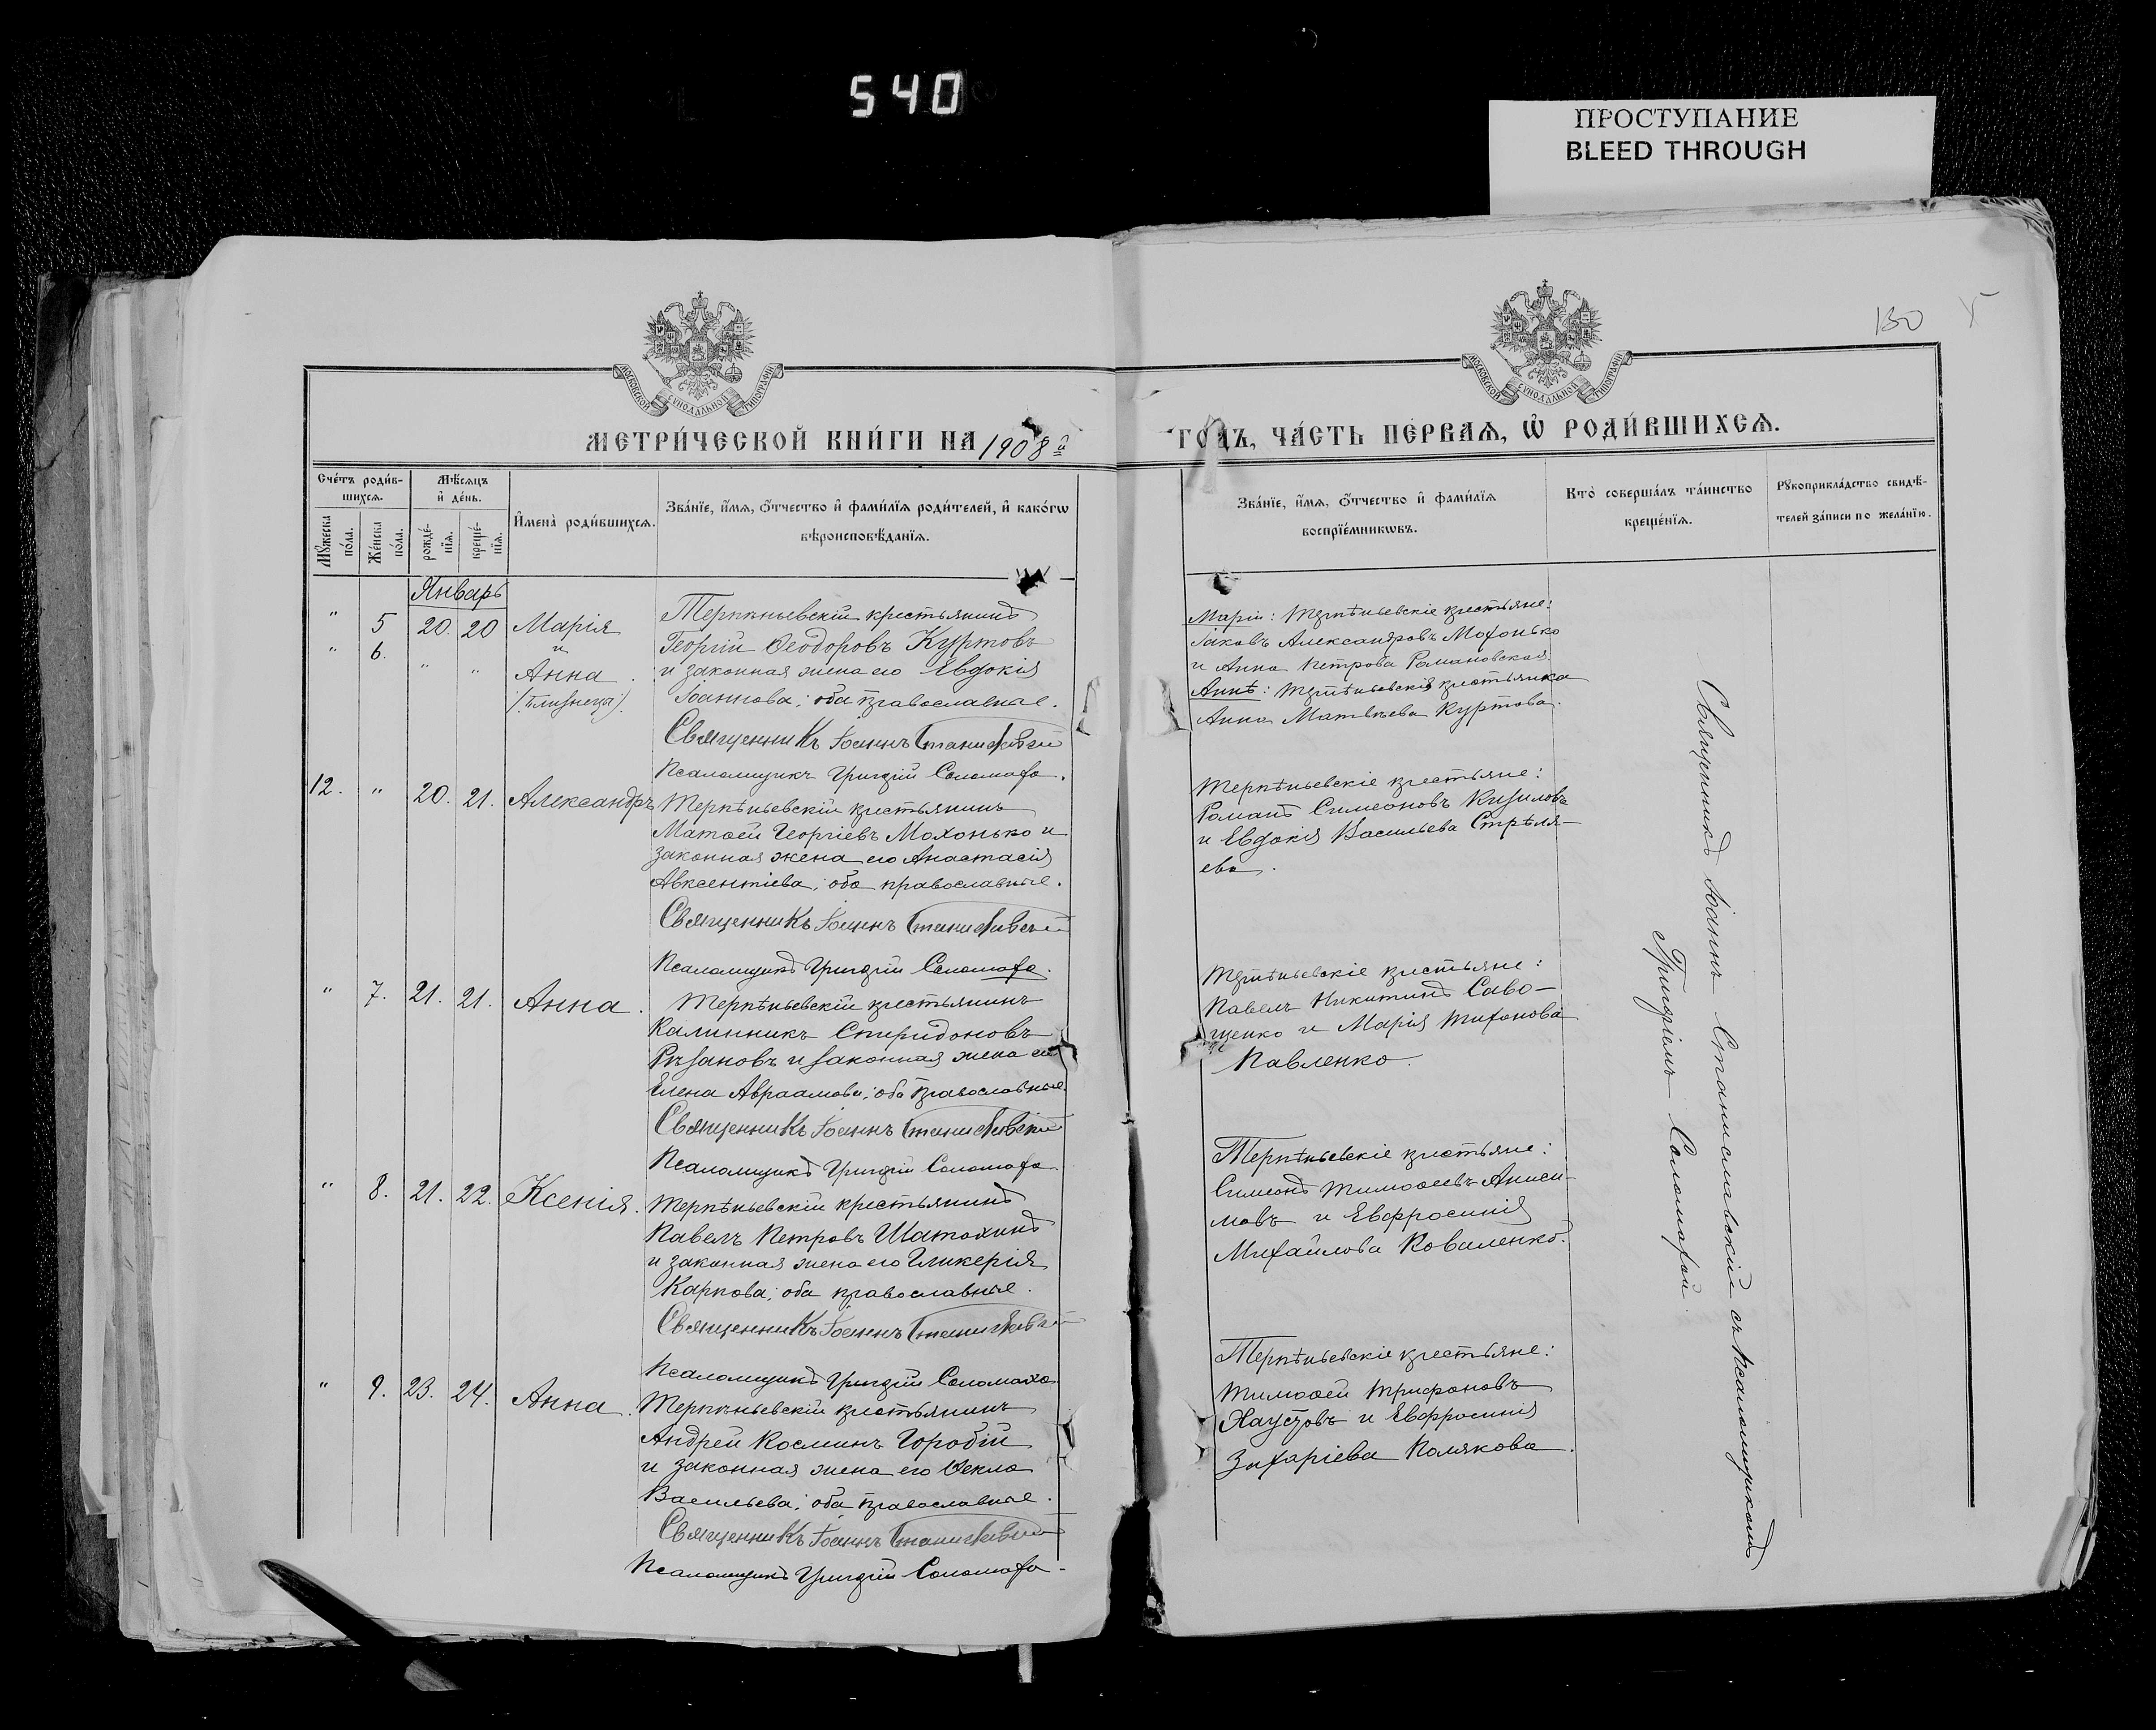 540
ПРОСТУПАНИЕ
BLEED THROUGH
130
МОСКОВСКОЙ СѴНОДАЛЬНОЙ ТИПОГРАФІИ
МОСКОВСКОЙ СѴНОДАЛЬНОЙ ТИПОГРАФІИ
МЕТРИ́ЧЕСКОЙ КНИ́ГИ НА 1908 й
ГОДЪ, ЧА́СТЬ ПЕ́РВАѦ, Ѽ РОДИ́ВШИХСѦ.
Сче́тъ роди́в-
шихсѧ.
Мꙋ́жеска по́ла.
Же́нска по́ла.
Мѣ́сѧцъ
и҆ де́нь.
рожде́-
нїѧ.
креще́-
нїѧ.
И҆мена̀ роди́вшихсѧ.
Зва́нїе, и҆́мѧ, ѻ҆́тчество и҆ фами́лїѧ роди́телей, и҆ како́гѡ
вѣроисповѣ́данїѧ.
Зва́нїе, и҆́мѧ, ѻ҆́тчество и҆ фами́лїѧ
воспрїе́мникѡвъ.
Кто̀ соверша́лъ та́инство
креще́нїѧ.
Рꙋкоприкла́дство свидѣ́-
телей за́писи по жела́нїю.
Январь
" 5 20. 20 Марія
" 6. " " и
Анна
(близнецы).
Терпѣньевскій крестьянинъ
Георгій Ѳеодоровъ Куртовъ
и законная жена его Евдокія
Іоаннова; оба православные.
Священникъ Іоаннъ Станиславскій
Псаломщикъ Григорій Соломаха.
Маріи: Терпѣньевскіе крестьяне:
Іаковъ Александровъ Мохонько
и Анна Петрова Романовская.
Аннѣ: Терпѣньевская крестьянка
Анна Матвѣева Куртова.
12. " 20. 21. Александръ
Терпѣньевскій крестьянинъ
Матѳей Георгіевъ Мохонько и
законная жена его Анастасія
Авксентіева; оба православные.
Священникъ Іоаннъ Станиславскій
Псаломщикъ Григорій Соломаха.
Терпѣньевскіе крестьяне:
Романъ Симеоновъ Кизиловъ
и Евдокія Васильева Стрѣля-
ева.
" 7. 21. 21. Анна.
Терпѣньевскій крестьянинъ
Калинникъ Спиридоновъ
Рѣзановъ и законная жена его
Елена Авраамова; оба православные.
Священникъ Іоаннъ Станиславскій
Псаломщикъ Григорій Соломаха
Терпѣньевскіе крестьяне:
Павелъ Никитинъ Саво-
щенко и Марія Тихонова
Павленко.
" 8. 21. 22. Ксенія.
Терпѣньевскій крестьянинъ
Павелъ Петровъ Шатохинъ
и законная жена его Гликерія
Карпова; оба православные.
Священникъ Іоаннъ Станиславскій
Псаломщикъ Григорій Соломаха
Терпѣньевскіе крестьяне:
Симеонъ Тимоѳеевъ Аниси-
мовъ и Евфросинія
Михайлова Коваленко.
" 9. 23. 24. Анна.
Терпѣньевскій крестьянинъ
Андрей Косминъ Горобій
и законная жена его Ѳекла
Васильева; оба православные.
Священникъ Іоаннъ Станиславскій
Псаломщикъ Григорій Соломаха.
Терпѣньевскіе крестьяне:
Тимоѳей Трифоновъ
Хаустовъ и Евфросинія
Захаріева Полякова.
Священникъ Іоаннъ Станиславскій съ псаломщикомъ
Григоріемъ Соломахой.